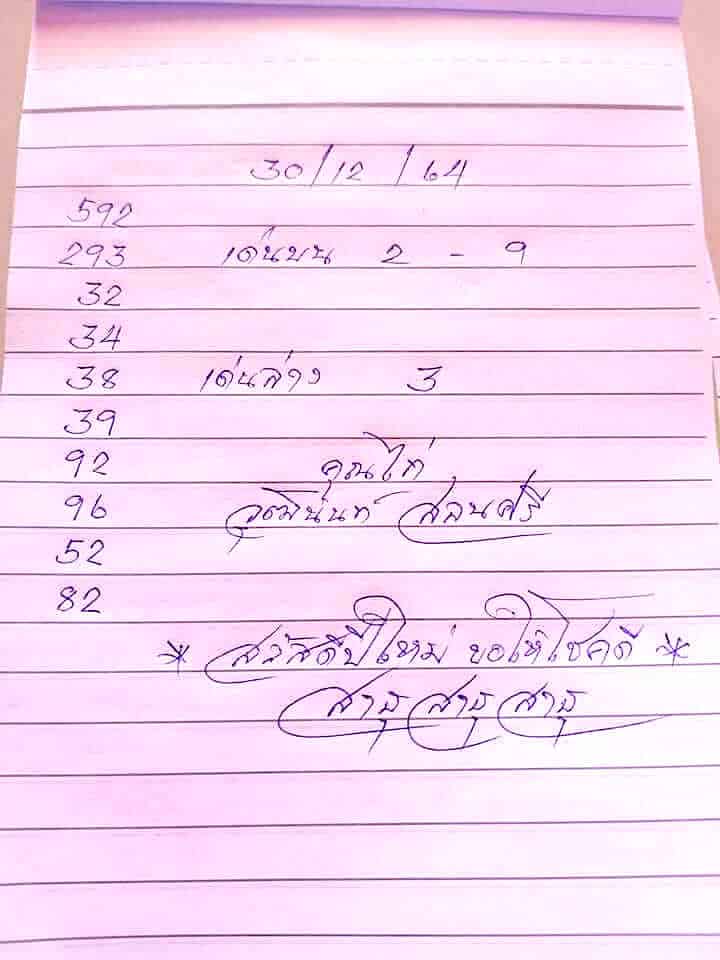 30/12/64
592
293 เด่นบน 2 - 9
32
34
38 เด่นล่าง 3
39
92 คุณไก่
96 วุฒินันท์ สอนศรี
52
82
* สวัสดีปีใหม่ ขอให้โชคดี *
สาธุ สาธุ สาธุ